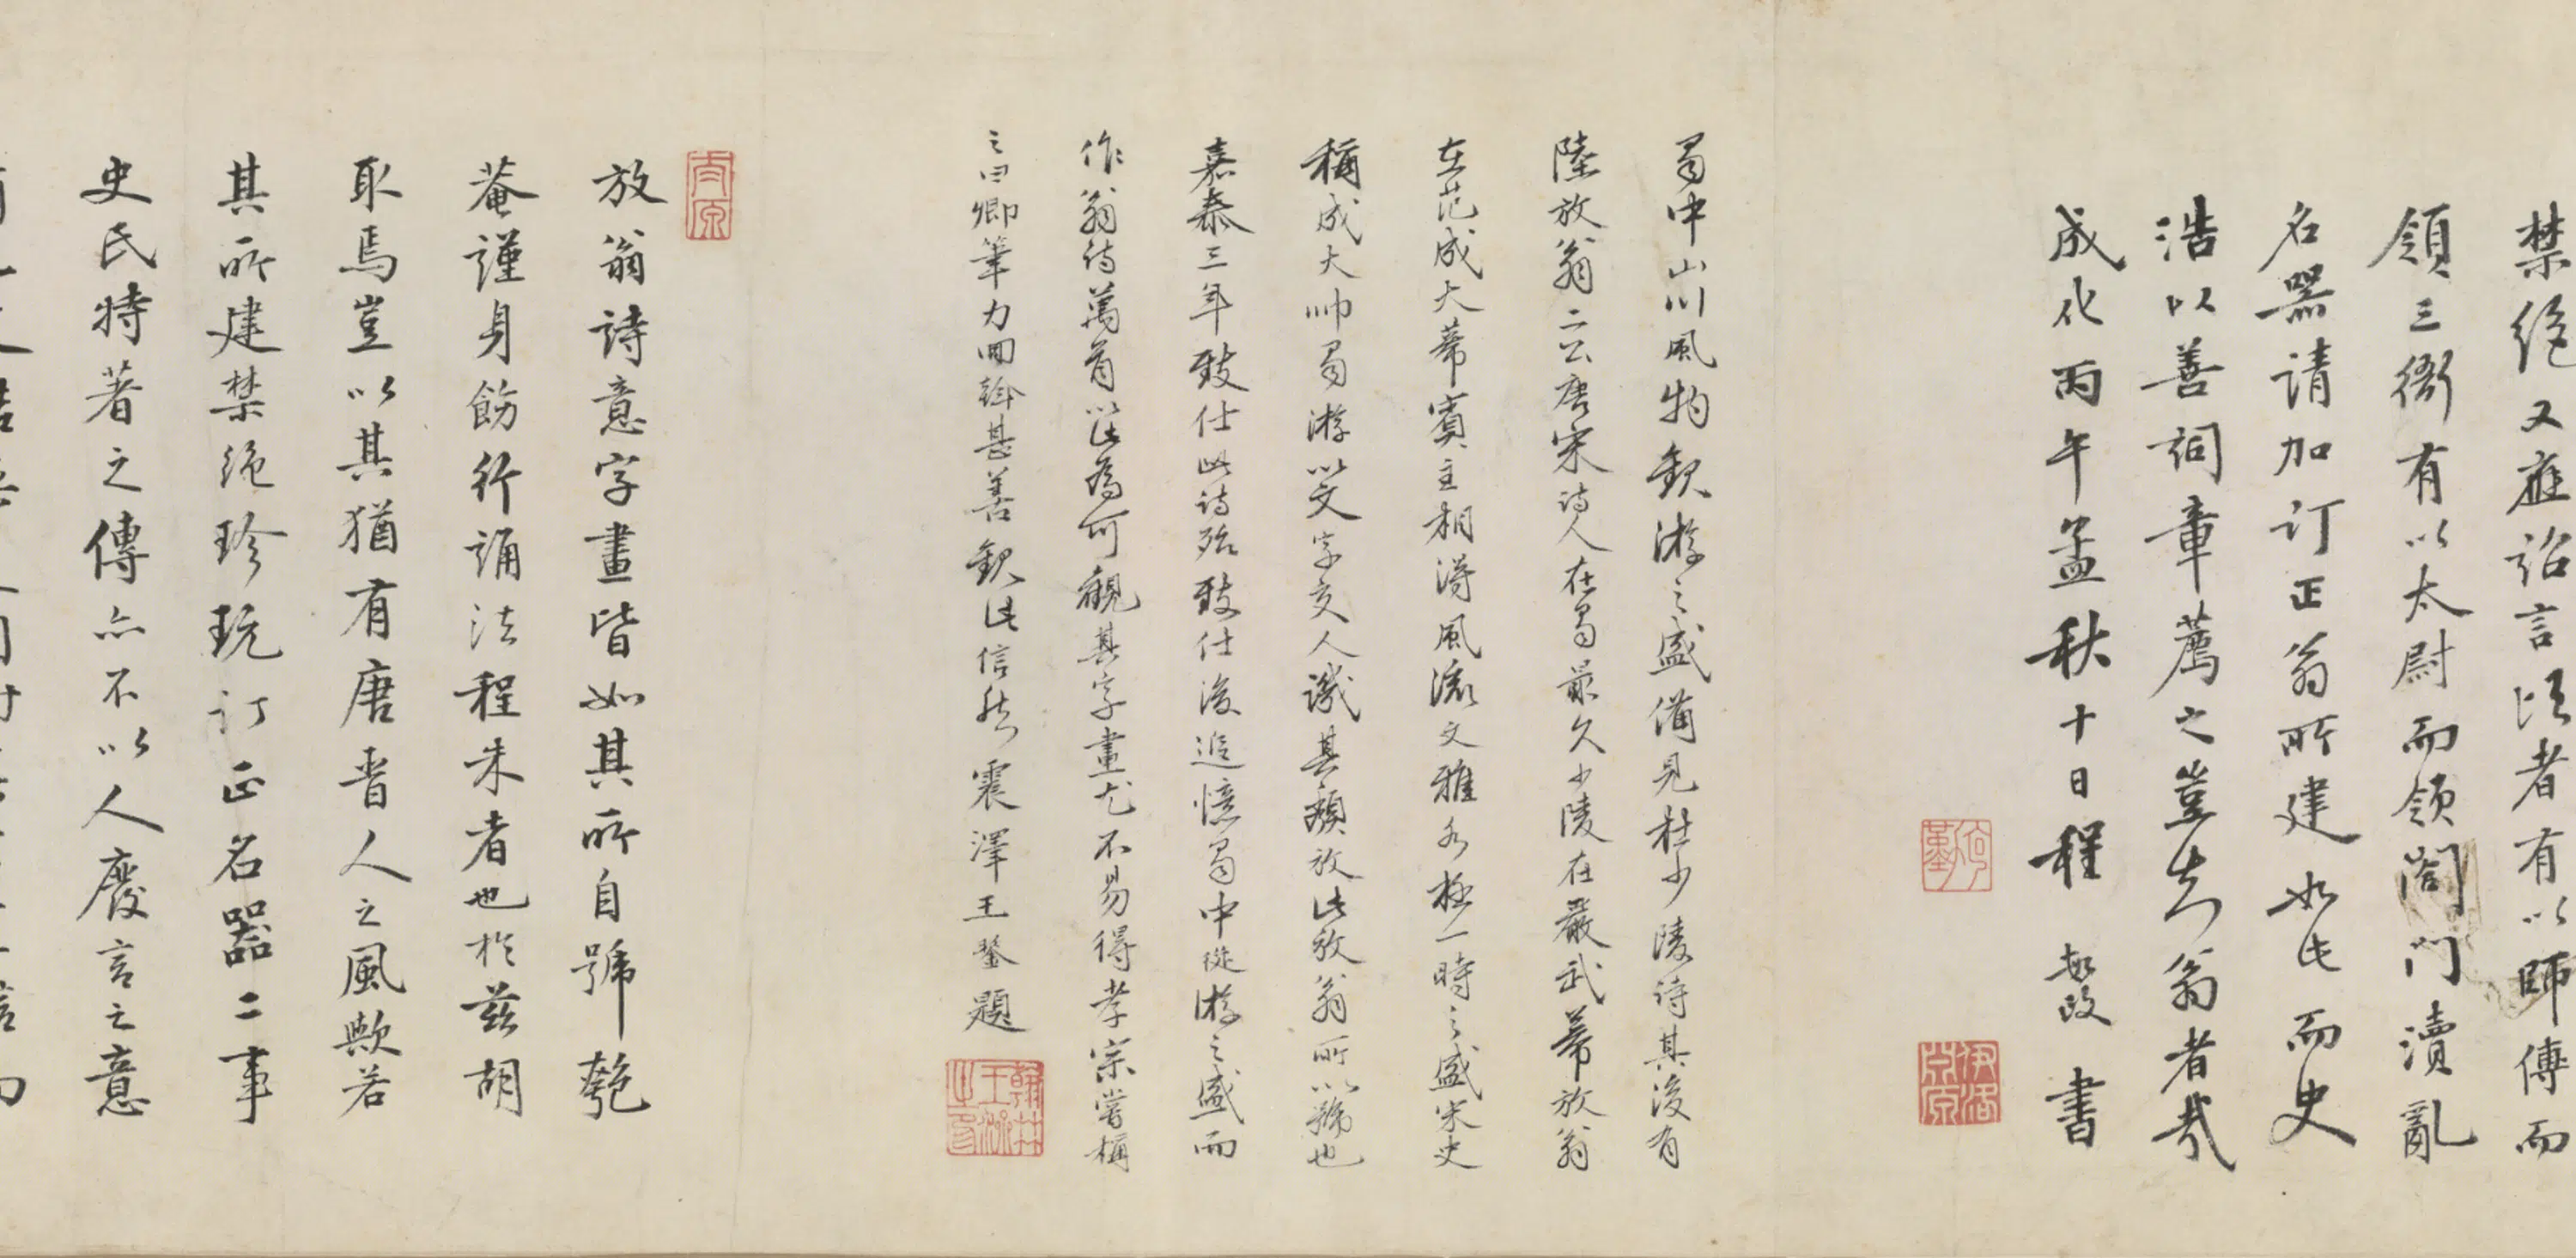 禁絕又應詔言頃者有以師傅而
領三衙有以太尉而領閤門瀆亂
名器請加訂正翁所建如此而史
浩以善詞章薦之豈知翁者哉
成化丙午孟秋十日程敏政書
蜀中山川風物觀游之盛備見杜少陵詩其後有
陸放翁二公唐宋詩人在蜀最久少陵在嚴武幕放翁
在范成大幕賓主相得風流文雅各極一時之盛宋史
稱成大帥蜀游以文字交人譏其頹放此放翁所以號也
嘉泰三年致仕此詩殆致仕後追憶蜀中從游之盛而
作翁詩萬首此為可觀其字畫尤不易得孝宗嘗稱
之曰卿筆力回斡甚善觀此信然震澤王鏊題
翰林王濟之印
太原
放翁詩意字畫皆如其所自號匏
菴謹身飭行誦法程朱者也於茲胡
取焉豈以其猶有唐晉人之風歟若
其所建禁絕珍玩訂正名器二事
史氏特著之傳亦不以人廢言之意